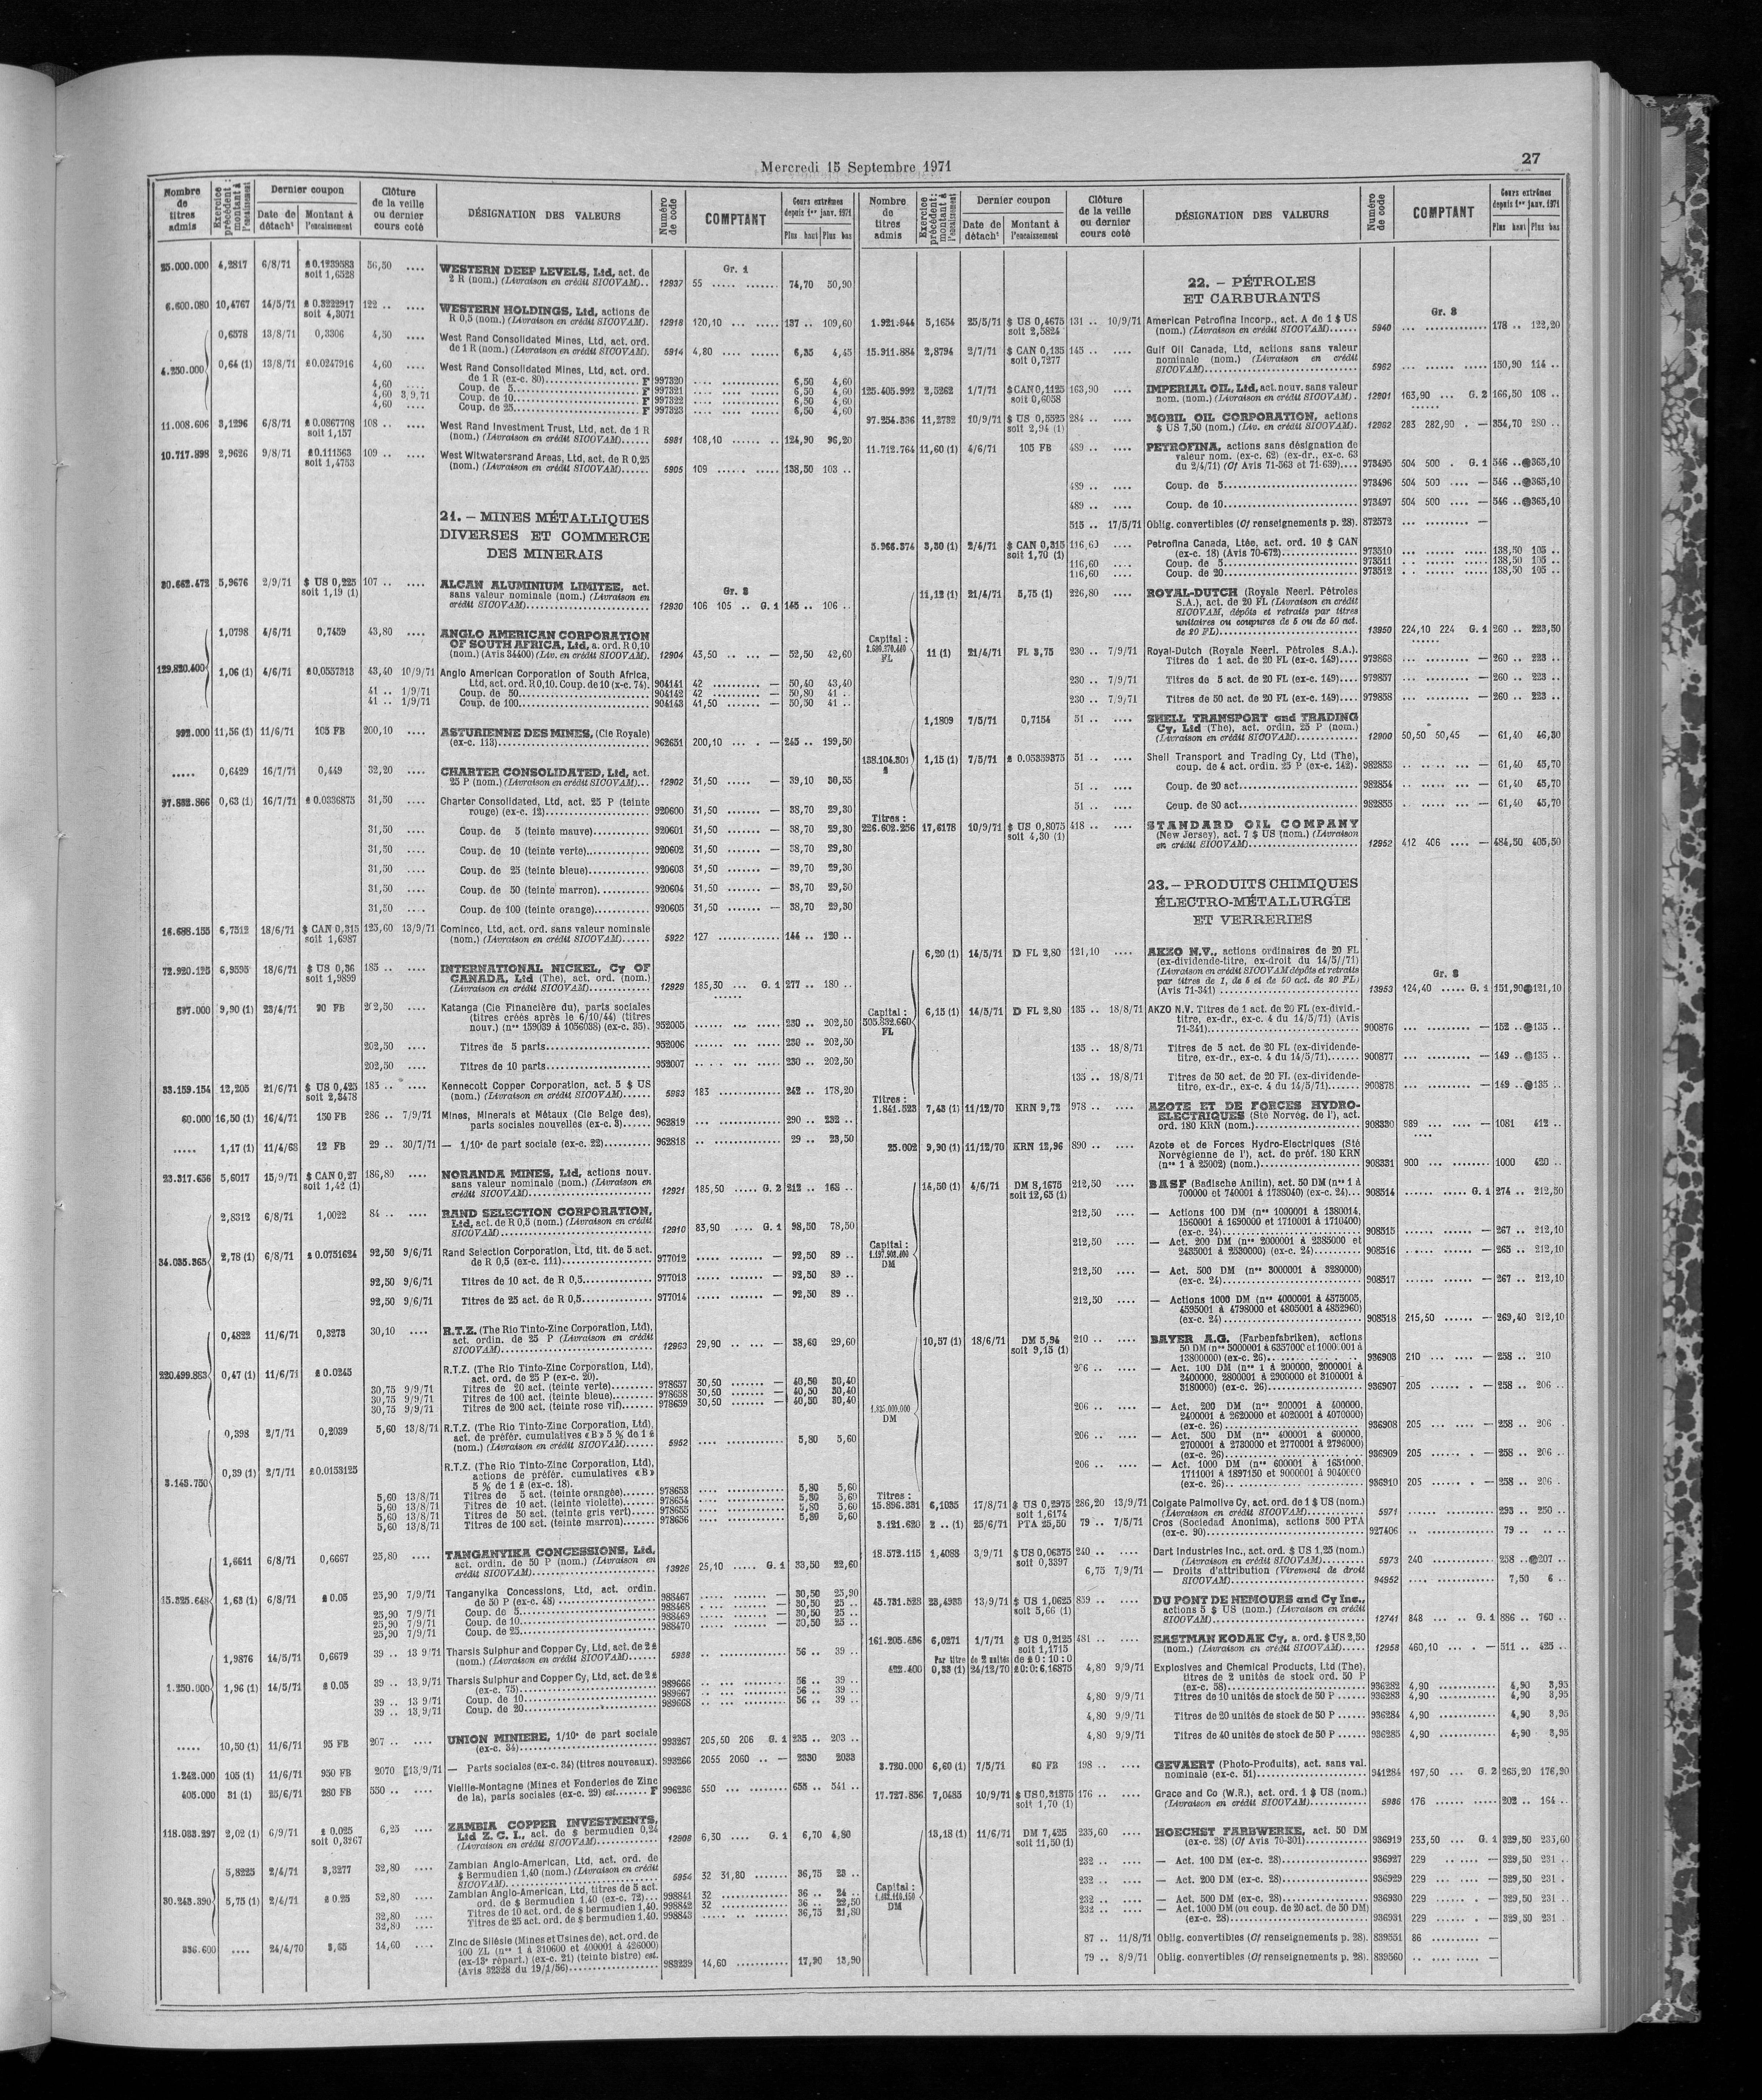 Mercredi 15 Septembre 1971
27
Nombre de titres admis
Exercice précédent : montant à l'encaissement
Dernier coupon
Date de détacht
Montant à l'encaissement
Clôture de la veille ou dernier cours coté
DÉSIGNATION DES VALEURS
Numéro de code
COMPTANT
Cours extrêmes depuis 1er janv. 1971
Plus haut Plus bas
Gr. 1
25.000.000 4,2817 6/8/71 £ 0.1239583 soit 1,6528 56,50 .... WESTERN DEEP LEVELS, Ltd, act. de 2 R (nom.) (Livraison en crédit SICOVAM).. 12937 55 74,70 50,90
6.600.080 10,4767 14/5/71 £ 0.3222917 soit 4,3071 122 .. .... WESTERN HOLDINGS, Ltd, actions de R 0,5 (nom.) (Livraison en crédit SICOVAM). 12918 120,10 137 .. 109,60
0,6578 13/8/71 0,3306 4,50 .... West Rand Consolidated Mines, Ltd, act. ord. de 1 R (nom.) (Livraison en crédit SICOVAM). 5914 4,80 6,35 4,45
4.250.000 0,64 (1) 13/8/71 £ 0.0247916 4,60 .... West Rand Consolidated Mines, Ltd, act. ord. de 1 R (ex-c. 80) F 997320 6,50 4,60
4,60 .... Coup. de 5 F 997321 6,50 4,60
4,60 3/9/71 Coup. de 10 F 997322 6,50 4,60
4,60 .... Coup. de 25 F 997323 6,50 4,60
11.008.606 3,1296 6/8/71 £ 0.0867708 soit 1,157 108 .. .... West Rand Investment Trust, Ltd, act. de 1 R (nom.) (Livraison en crédit SICOVAM) 5981 108,10 124,90 96,20
10.717.898 2,9626 9/8/71 £ 0.111563 soit 1,4753 109 .. .... West Witwatersrand Areas, Ltd, act. de R 0,25 (nom.) (Livraison en crédit SICOVAM) 5905 109 138,50 103 ..
21. – MINES MÉTALLIQUES
DIVERSES ET COMMERCE
DES MINERAIS
Gr. 3
30.662.472 5,9676 2/9/71 $ US 0,225 soit 1,19 (1) 107 .. .... ALCAN ALUMINIUM LIMITEE, act. sans valeur nominale (nom.) (Livraison en crédit SICOVAM) 12930 106 105 .. G. 1 145 .. 106 ..
1,0798 4/6/71 0,7459 43,80 .... ANGLO AMERICAN CORPORATION OF SOUTH AFRICA, Ltd, a. ord. R 0,10 (nom.) (Avis 34400) (Liv. en crédit SICOVAM). 12904 43,50 — 52,50 42,60
129.820.400 1,06 (1) 4/6/71 £ 0.0557313 43,40 10/9/71 Anglo American Corporation of South Africa, Ltd, act. ord. R 0,10. Coup. de 10 (x-c. 74). 904141 42 — 50,40 43,40
41 .. 1/9/71 Coup. de 50 904142 42 — 50,80 41 ..
41 .. 1/9/71 Coup. de 100 904143 41,50 — 50,50 41 ..
992.000 11,56 (1) 11/6/71 105 FB 200,10 .... ASTURIENNE DES MINES, (Cie Royale) (ex-c. 113) 962651 200,10 — 245 .. 199,50
..... 0,6429 16/7/71 0,449 32,20 .... CHARTER CONSOLIDATED, Ltd, act. 25 P (nom.) (Livraison en crédit SICOVAM) 12902 31,50 — 39,10 30,55
97.882.866 0,63 (1) 16/7/71 £ 0.0336875 31,50 .... Charter Consolidated, Ltd, act. 25 P (teinte rouge) (ex-c. 12) 920600 31,50 — 38,70 29,30
31,50 .... Coup. de 5 (teinte mauve) 920601 31,50 — 38,70 29,30
31,50 .... Coup. de 10 (teinte verte) 920602 31,50 — 38,70 29,30
31,50 .... Coup. de 25 (teinte bleue) 920603 31,50 — 39,70 29,30
31,50 .... Coup. de 50 (teinte marron) 920604 31,50 — 38,70 29,30
31,50 .... Coup. de 100 (teinte orange) 920605 31,50 — 38,70 29,30
16.688.155 6,7512 18/6/71 $ CAN 0,315 soit 1,6987 125,60 13/9/71 Cominco, Ltd, act. ord. sans valeur nominale (nom.) (Livraison en crédit SICOVAM) 5922 127 144 .. 120 ..
72.920.125 6,9595 18/6/71 $ US 0,36 soit 1,9899 185 .. .... INTERNATIONAL NICKEL, Cy OF CANADA, Ltd (The), act. ord. (nom.) (Livraison en crédit SICOVAM) 12929 185,50 G. 1 277 .. 180 ..
597.000 9,90 (1) 23/4/71 90 FB 202,50 .... Katanga (Cie Financière du), parts sociales (titres créés après le 6/10/44) (titres nouv.) (nos 159039 à 1056038) (ex-c. 35). 952005 230 .. 202,50
202,50 .... Titres de 5 parts 952006 230 .. 202,50
202,50 .... Titres de 10 parts 952007 230 .. 202,50
33.159.154 12,205 21/6/71 $ US 0,425 soit 2,3478 185 .. .... Kennecott Copper Corporation, act. 5 $ US (nom.) (Livraison en crédit SICOVAM) 5963 183 242 .. 178,20
60.000 16,50 (1) 16/4/71 150 FB 286 .. 7/9/71 Mines, Minerais et Métaux (Cie Belge des), parts sociales nouvelles (ex-c. 3) 962819 290 .. 232 ..
..... 1,17 (1) 11/4/68 12 FB 29 .. 30/7/71 — 1/10e de part sociale (ex-c. 22) 962818 29 .. 23,50
23.317.656 5,6017 15/9/71 $ CAN 0,27 soit 1,42 (1) 186,80 .... NORANDA MINES, Ltd, actions nouv. sans valeur nominale (nom.) (Livraison en crédit SICOVAM) 12921 185,50 G. 2 212 .. 168 ..
2,8312 6/8/71 1,0022 84 .. .... RAND SELECTION CORPORATION, Ltd, act. de R 0,5 (nom.) (Livraison en crédit SICOVAM) 12910 83,90 G. 1 98,50 78,50
34.035.365 2,78 (1) 6/8/71 £ 0.0751624 92,50 9/6/71 Rand Selection Corporation, Ltd, tit. de 5 act. de R 0,5 (ex-c. 111) 977012 — 92,50 89 ..
92,50 9/6/71 Titres de 10 act. de R 0,5 977013 — 92,50 89 ..
92,50 9/6/71 Titres de 25 act. de R 0,5 977014 — 92,50 89 ..
0,4822 11/6/71 0,3273 30,10 .... R.T.Z. (The Rio Tinto-Zinc Corporation, Ltd), act. ordin. de 25 P (Livraison en crédit SICOVAM) 12963 29,90 — 38,60 29,60
220.499.883 0,47 (1) 11/6/71 £ 0.0245 R.T.Z. (The Rio Tinto-Zinc Corporation, Ltd), act. ord. de 25 P (ex-c. 20).
30,75 9/9/71 Titres de 20 act. (teinte verte) 978657 30,50 — 40,50 30,40
30,75 9/9/71 Titres de 100 act. (teinte bleue) 978658 30,50 — 40,50 30,40
30,75 9/9/71 Titres de 200 act. (teinte rose vif) 978659 30,50 — 40,50 30,40
0,398 2/7/71 0,2039 5,60 13/8/71 R.T.Z. (The Rio Tinto-Zinc Corporation, Ltd), act. de préfér. cumulatives «B» 5 % de 1 £ (nom.) (Livraison en crédit SICOVAM) 5952 5,80 5,60
3.143.750 0,39 (1) 2/7/71 £ 0.0153125 R.T.Z. (The Rio Tinto-Zinc Corporation, Ltd), actions de préfér. cumulatives «B» 5 % de 1 £ (ex-c. 18).
5,60 13/8/71 Titres de 5 act. (teinte orangée) 978653 5,80 5,60
5,60 13/8/71 Titres de 10 act. (teinte violette) 978654 5,80 5,60
5,60 13/8/71 Titres de 50 act. (teinte gris vert) 978655 5,80 5,60
5,60 13/8/71 Titres de 100 act. (teinte marron) 978656 5,80 5,60
1,6611 6/8/71 0,6667 25,80 .... TANGANYIKA CONCESSIONS, Ltd, act. ordin. de 50 P (nom.) (Livraison en crédit SICOVAM) 13926 25,10 G. 1 33,50 22,60
15.325.648 1,63 (1) 6/8/71 £ 0.05 25,90 7/9/71 Tanganyika Concessions, Ltd, act. ordin. de 50 P (ex-c. 48) 988467 — 30,50 25,90
25,90 7/9/71 Coup. de 5 988468 — 30,50 25 ..
25,90 7/9/71 Coup. de 10 988469 — 30,50 25 ..
25,90 7/9/71 Coup. de 25 988470 — 30,50 25 ..
1,9876 14/5/71 0,6679 39 .. 13/9/71 Tharsis Sulphur and Copper Cy, Ltd, act. de 2 £ (nom.) (Livraison en crédit SICOVAM) 5938 56 .. 39 ..
1.250.000 1,96 (1) 14/5/71 £ 0.05 39 .. 13/9/71 Tharsis Sulphur and Copper Cy, Ltd, act. de 2 £ (ex-c. 75) 989666 56 .. 39 ..
39 .. 13/9/71 Coup. de 10 989667 56 .. 39 ..
39 .. 13/9/71 Coup. de 20 989668 56 .. 39 ..
..... 10,50 (1) 11/6/71 95 FB 207 .. .... UNION MINIERE, 1/10e de part sociale (ex-c. 34) 993267 205,50 206 G. 1 235 .. 203 ..
1.242.000 105 (1) 11/6/71 950 FB 2070 13/9/71 — Parts sociales (ex-c. 34) (titres nouveaux). 993266 2055 2060 .. — 2330 2033
405.000 31 (1) 25/6/71 280 FB 550 .. .... Vieille-Montagne (Mines et Fonderies de Zinc de la), parts sociales (ex-c. 29) est. F 996236 550 655 .. 541 ..
118.033.297 2,02 (1) 6/9/71 £ 0.025 soit 0,3267 6,25 .... ZAMBIA COPPER INVESTMENTS, Ltd Z. C. I., act. de $ bermudien 0,24 (Livraison en crédit SICOVAM) 12908 6,30 G. 1 6,70 4,80
5,8225 2/4/71 3,3277 32,80 .... Zambian Anglo-American, Ltd, act. ord. de $ Bermudien 1,40 (nom.) (Livraison en crédit SICOVAM) 5954 32 31,80 36,75 23 ..
30.243.390 5,75 (1) 2/4/71 £ 0.25 32,80 .... Zambian Anglo-American, Ltd, titres de 5 act. ord. de $ Bermudien 1,40 (ex-c. 72) 998841 32 36 .. 24 ..
32,80 .... Titres de 10 act. ord. de $ bermudien 1,40. 998842 32 36 .. 22,50
32,80 .... Titres de 25 act. ord. de $ bermudien 1,40. 998843 36,75 21,80
336.600 .... 24/4/70 3,65 14,60 .... Zinc de Silésie (Mines et Usines de), act. ord. de 100 ZL (nos 1 à 310600 et 400001 à 426000) (ex-13e répart.) (ex-c. 21) (teinte bistre) est. (Avis 32328 du 19/1/56) 983239 14,60 17,20 13,90
Nombre de titres admis
Exercice précédent : montant à l'encaissement
Dernier coupon
Date de détacht
Montant à l'encaissement
Clôture de la veille ou dernier cours coté
DÉSIGNATION DES VALEURS
Numéro de code
COMPTANT
Cours extrêmes depuis 1er janv. 1971
Plus haut Plus bas
22. – PÉTROLES
ET CARBURANTS
Gr. 3
1.921.944 5,1654 25/5/71 $ US 0,4675 soit 2,5824 131 .. 10/9/71 American Petrofina Incorp., act. A de 1 $ US (nom.) (Livraison en crédit SICOVAM) 5940 178 .. 122,20
15.911.884 2,8794 2/7/71 $ CAN 0,135 soit 0,7277 145 .. .... Gulf Oil Canada, Ltd, actions sans valeur nominale (nom.) (Livraison en crédit SICOVAM) 5962 150,90 114 ..
125.405.992 2,5262 1/7/71 $ CAN 0,1125 soit 0,6058 163,90 .... IMPERIAL OIL, Ltd, act. nouv. sans valeur nom. (nom.) (Livraison en crédit SICOVAM) . 12901 163,90 ... G. 2 166,50 108 ..
97.254.336 11,2732 10/9/71 $ US 0,5525 soit 2,94 (1) 284 .. .... MOBIL OIL CORPORATION, actions $ US 7,50 (nom.) (Liv. en crédit SICOVAM). 12982 283 282,90 . — 354,70 280 ..
11.712.764 11,60 (1) 4/6/71 105 FB 489 .. .... PETROFINA, actions sans désignation de valeur nom. (ex-c. 62) (ex-dr., ex-c. 63 du 2/4/71) (Cf Avis 71-563 et 71-639) 973495 504 500 . G. 1 546 .. 365,10
489 .. .... Coup. de 5 973496 504 500 — 546 .. 365,10
489 .. .... Coup. de 10 973497 504 500 — 546 .. 365,10
515 .. 17/5/71 Oblig. convertibles (Cf renseignements p. 28). 872572 —
5.966.374 3,30 (1) 2/4/71 $ CAN 0,315 soit 1,70 (1) 116,60 .... Petrofina Canada, Ltée, act. ord. 10 $ CAN (ex-c. 18) (Avis 70-672) 973510 138,50 105 ..
116,60 .... Coup. de 5 973511 138,50 105 ..
116,60 .... Coup. de 20 973512 138,50 105 ..
11,12 (1) 21/4/71 5,75 (1) 226,80 .... ROYAL-DUTCH (Royale Neerl. Pétroles S.A.), act. de 20 FL (Livraison en crédit SICOVAM, dépôts et retraits par titres unitaires ou coupures de 5 ou de 50 act. de 20 FL) 13950 224,10 224 G. 1 260 .. 223,50
Capital : FL
11 (1) 21/4/71 FL 3,75 230 .. 7/9/71 Royal-Dutch (Royale Neerl. Pétroles S.A.). Titres de 1 act. de 20 FL (ex-c. 149) 979868 — 260 .. 223 ..
230 .. 7/9/71 Titres de 5 act. de 20 FL (ex-c. 149) 979857 — 260 .. 223 ..
230 .. 7/9/71 Titres de 50 act. de 20 FL (ex-c. 149) 979858 — 260 .. 223 ..
1,1809 7/5/71 0,7154 51 .. .... SHELL TRANSPORT and TRADING Cy, Ltd (The), act. ordin. 25 P (nom.) (Livraison en crédit SICOVAM) 12900 50,50 50,45 — 61,40 46,30
138.104.301 £ 1,15 (1) 7/5/71 £ 0.05359375 51 .. .... Shell Transport and Trading Cy, Ltd (The), coup. de 4 act. ordin. 25 P (ex-c. 142). 982853 — 61,40 45,70
51 .. .... Coup. de 20 act 982854 — 61,40 45,70
51 .. .... Coup. de 80 act 982855 — 61,40 45,70
Titres :
226.602.256 17,6178 10/9/71 $ US 0,8075 soit 4,30 (1) 418 .. .... STANDARD OIL COMPANY (New Jersey), act. 7 $ US (nom.) (Livraison en crédit SICOVAM) 12952 412 406 .... — 484,50 405,50
23. – PRODUITS CHIMIQUES
ÉLECTRO-MÉTALLURGIE
ET VERRERIES
Gr. 3
6,20 (1) 14/5/71 D FL 2,80 121,10 .... AKZO N.V., actions ordinaires de 20 FL (ex-dividende-titre, ex-droit du 14/5//71) (Livraison en crédit SICOVAM dépôts et retraits par titres de 1, de 5 et de 50 act. de 20 FL) (Avis 71-341) 13953 124,40 G. 1 151,90 121,10
Capital : 505.832.660 FL
6,15 (1) 14/5/71 D FL 2,80 135 .. 18/8/71 AKZO N.V. Titres de 1 act. de 20 FL (ex-divid.-titre, ex-dr., ex-c. 4 du 14/5/71) (Avis 71-341) 900876 — 152 .. 135 ..
135 .. 18/8/71 Titres de 5 act. de 20 FL (ex-dividende-titre, ex-dr., ex-c. 4 du 14/5/71) 900877 — 149 .. 135 ..
135 .. 18/8/71 Titres de 50 act. de 20 FL (ex-dividende-titre, ex-dr., ex-c. 4 du 14/5/71) 900878 — 149 .. 135 ..
Titres :
1.841.523 7,43 (1) 11/12/70 KRN 9,72 978 .. .... AZOTE ET DE FORCES HYDRO-ELECTRIQUES (Sté Norvég. de l'), act. ord. 180 KRN (nom.) 908330 989 — 1081 412 ..
25.002 9,90 (1) 11/12/70 KRN 12,96 890 .. .... Azote et de Forces Hydro-Electriques (Sté Norvégienne de l'), act. de préf. 180 KRN (nos 1 à 25002) (nom.) 908331 900 1000 420 ..
14,50 (1) 4/6/71 DM 8,1675 soit 12,65 (1) 212,50 .... BASF (Badische Anilin), act. 50 DM (nos 1 à 700000 et 740001 à 1738040) (ex-c. 24) 908514 G. 1 274 .. 212,50
212,50 .... — Actions 100 DM (nos 1000001 à 1380014, 1560001 à 1690000 et 1710001 à 1710400) (ex-c. 24) 908515 — 267 .. 212,10
Capital : DM
212,50 .... — Act. 200 DM (nos 2000001 à 2385000 et 2435001 à 2530000) (ex-c. 24) 908516 — 265 .. 212,10
212,50 .... — Act. 500 DM (nos 3000001 à 3280000) (ex-c. 24) 908517 — 267 .. 212,10
212,50 .... — Actions 1000 DM (nos 4000001 à 4575005, 4595001 à 4798000 et 4805001 à 4852960) (ex-c. 24) 908518 215,50 — 269,40 212,10
10,57 (1) 18/6/71 DM 5,94 soit 9,15 (1) 210 .. .... BAYER A.G. (Farbenfabriken), actions 50 DM (nos 5000001 à 6357000 et 10000001 à 13800000) (ex-c. 26) 936903 210 — 258 .. 210
206 .. .... — Act. 100 DM (nos 1 à 200000, 2000001 à 2400000, 2800001 à 2900000 et 3100001 à 3180000) (ex-c. 26) 936907 205 — 258 .. 206 ..
DM
206 .. .... — Act. 200 DM (nos 200001 à 400000, 2400001 à 2620000 et 4020001 à 4070000) (ex-c. 26) 936908 205 — 258 .. 206
206 .. .... — Act. 500 DM (nos 400001 à 600000, 2700001 à 2730000 et 2770001 à 2796000) (ex-c. 26) 936909 205 — 258 .. 206 ..
206 .. .... — Act. 1000 DM (nos 600001 à 1651000, 1711001 à 1897150 et 9000001 à 9040000 (ex-c. 26) 936910 205 — 258 .. 206 .
Titres :
15.896.331 6,1035 17/8/71 $ US 0,2975 soit 1,6174 286,20 13/9/71 Colgate Palmolive Cy, act. ord. de 1 $ US (nom.) (Livraison en crédit SICOVAM) 5971 — 293 .. 250 ..
3.121.620 2 .. (1) 25/6/71 PTA 25,50 79 .. 7/5/71 Cros (Sociedad Anonima), actions 500 PTA (ex-c. 90) 927406 79 .. .. ..
18.572.115 1,4088 3/9/71 $ US 0,06375 soit 0,3397 240 .. .... Dart Industries Inc., act. ord. $ US 1,25 (nom.) (Livraison en crédit SICOVAM) 5973 240 258 .. 207 ..
6,75 7/9/71 — Droits d'attribution (Virement de droit SICOVAM) 94952 7,50 6 ..
45.731.528 28,4935 13/9/71 $ US 1,0625 soit 5,66 (1) 839 .. .... DU PONT DE NEMOURS and Cy Inc., actions 5 $ US (nom.) (Livraison en crédit SICOVAM) 12741 848 G. 1 886 .. 760 ..
161.205.486 6,0271 1/7/71 $ US 0,2125 soit 1,1715 481 .. .... EASTMAN KODAK Cy, a. ord. $ US 2,50 (nom.) (Livraison en crédit SICOVAM) 12958 460,10 — 511 .. 425 ..
Par titre de 2 unités de £ 0 : 10 : 0
422.400 0,33 (1) 24/12/70 £ 0:0:6,16875 4,80 9/9/71 Explosives and Chemical Products, Ltd (The), titres de 2 unités de stock ord. 50 P (ex-c. 58) 936282 4,90 4,90 3,95
4,80 9/9/71 Titres de 10 unités de stock de 50 P 936283 4,90 4,90 3,95
4,80 9/9/71 Titres de 20 unités de stock de 50 P 936284 4,90 4,90 3,95
4,80 9/9/71 Titres de 40 unités de stock de 50 P 936285 4,90 4,90 3,95
3.720.000 6,60 (1) 7/5/71 60 FB 198 .. .... GEVAERT (Photo-Produits), act. sans val. nominale (ex-c. 51) 941284 197,50 ... G. 2 265,20 176,20
17.727.856 7,0485 10/9/71 $ US 0,31875 soit 1,70 (1) 176 .. .... Grace and Co (W.R.), act. ord. 1 $ US (nom.) (Livraison en crédit SICOVAM) 5986 176 202 .. 164 ..
13,18 (1) 11/6/71 DM 7,425 soit 11,50 (1) 235,60 .... HOECHST FARBWERKE, act. 50 DM (ex-c. 28) (Cf Avis 70-301) 936919 233,50 ... G. 1 329,50 233,60
232 .. .... — Act. 100 DM (ex-c. 28) 936927 229 — 329,50 231 ..
232 .. .... — Act. 200 DM (ex-c. 28) 936929 229 — 329,50 231 .
Capital : DM
232 .. .... — Act. 500 DM (ex-c. 28) 936930 229 — 329,50 231 ..
232 .. .... — Act. 1000 DM (ou coup. de 20 act. de 50 DM) (ex-c. 28) 936931 229 — 329,50 231 .
87 .. 11/8/71 Oblig. convertibles (Cf renseignements p. 28). 839551 86 —
79 .. 8/9/71 Oblig. convertibles (Cf renseignements p. 28). 839560 —